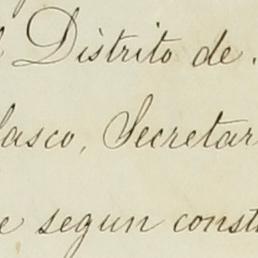 Distrito de
asco, Secretar
e segun const